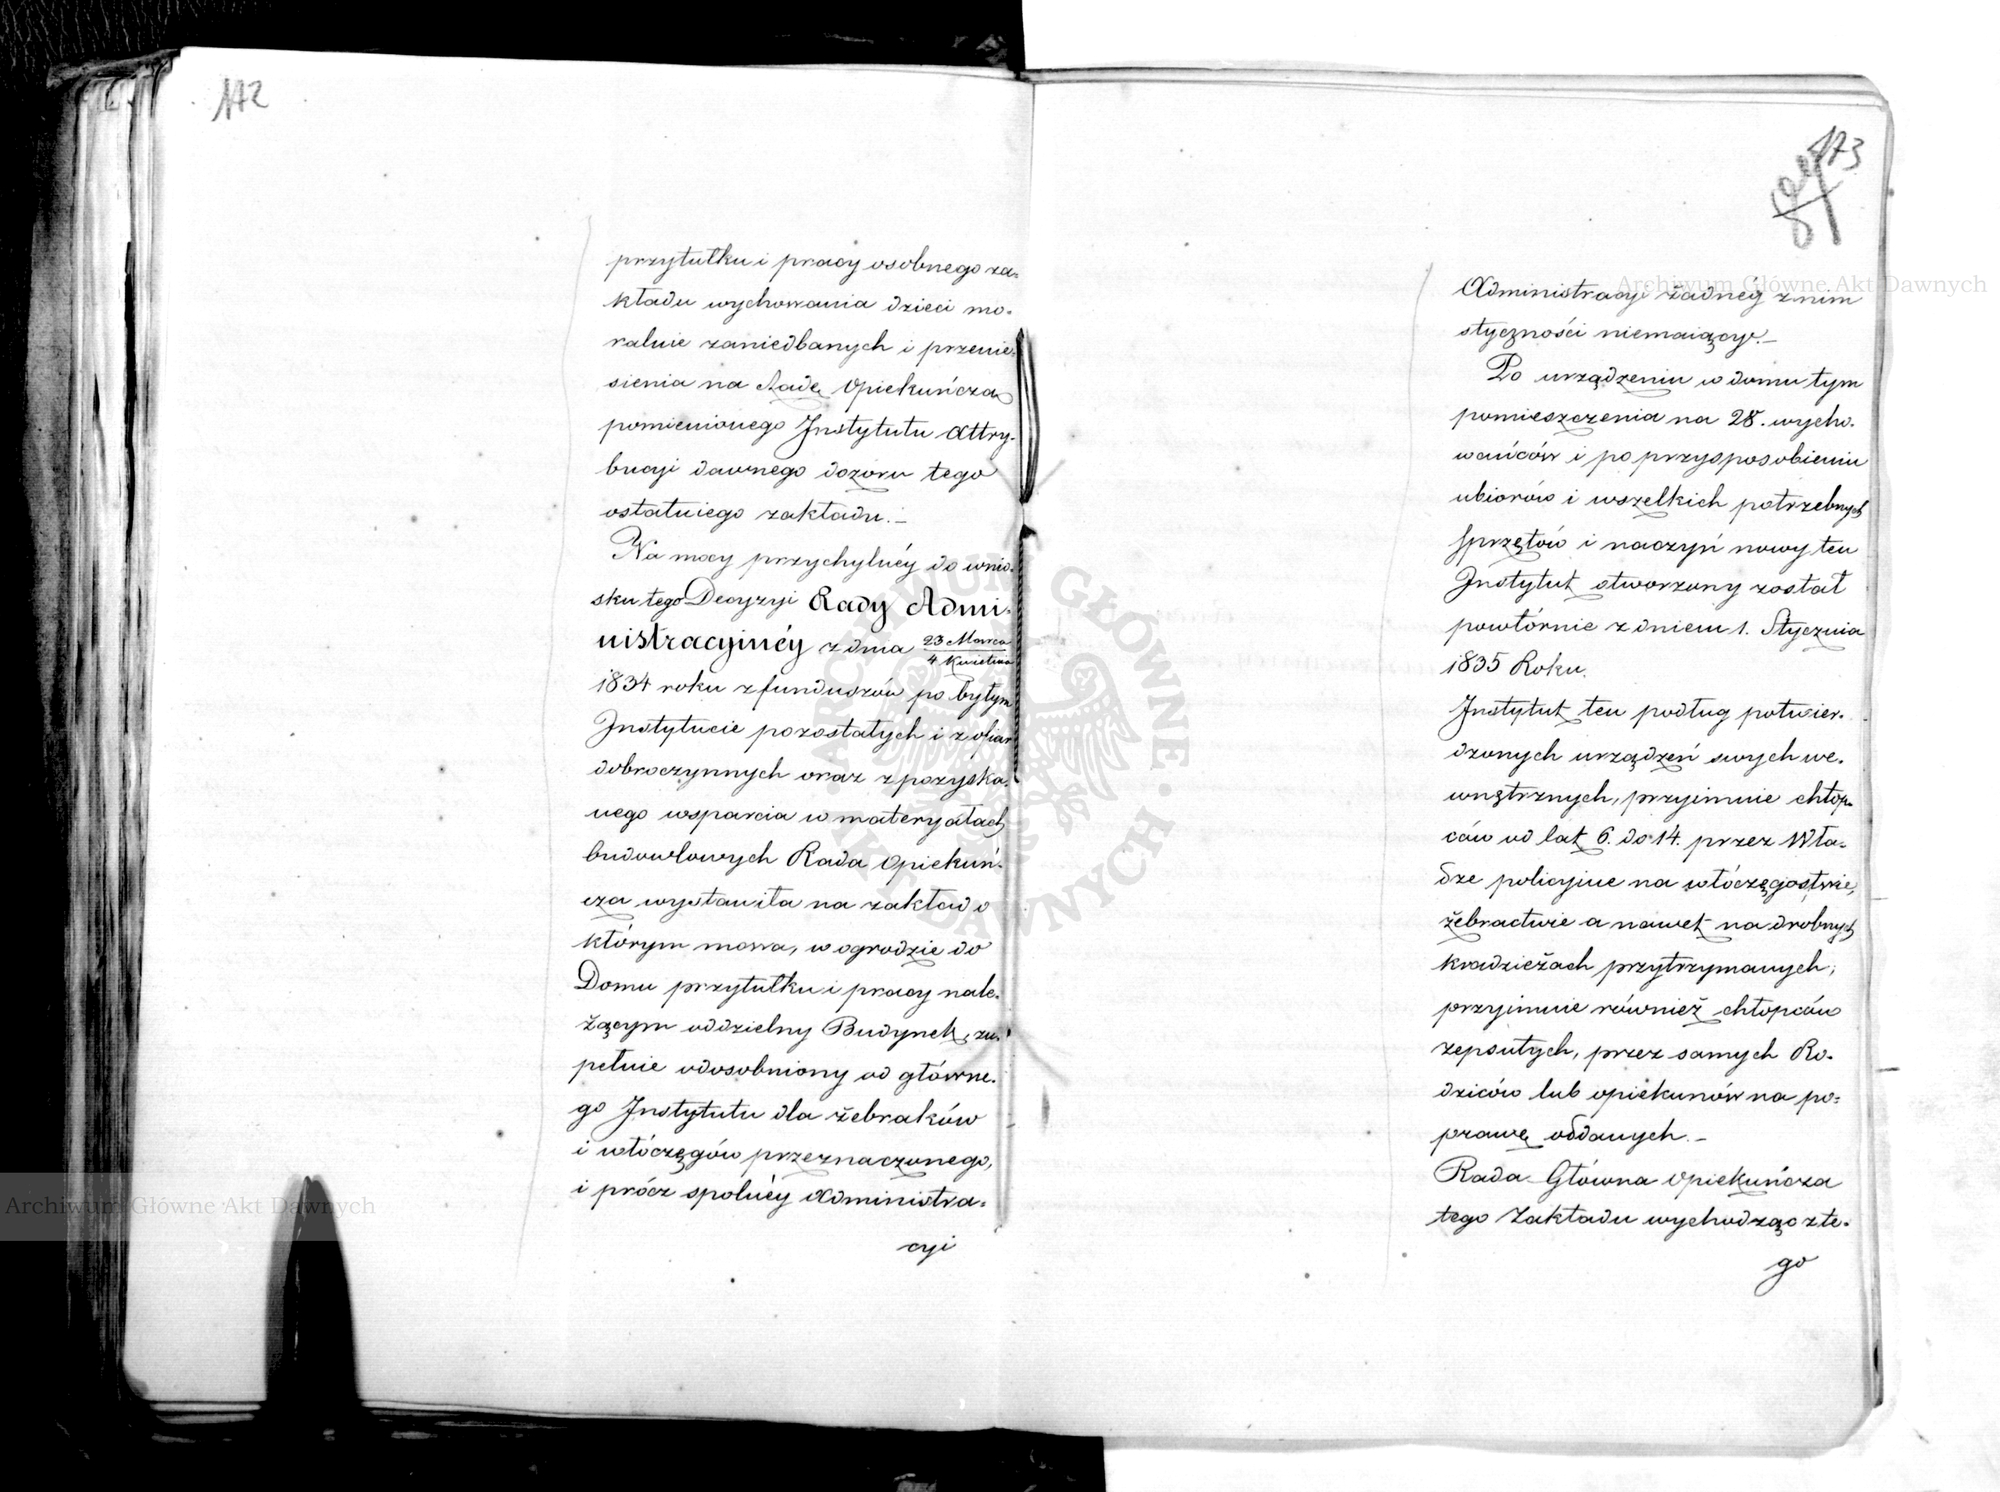 172
przytułku i pracy osobnego za-
kładu wychowania dzieci mo-
ralnie zaniedbanych i przenie-
sienia na Radę Opiekuńczą
pomienionego Instytutu Attry-
bucyi dawnego dozoru tego
ostatniego zakładu.—
Na mocy przychylnéy do wnio-
sku tego Decyzyi Rady Admi-
nistracyinéy z dnia 23 Marca
4 Kwietnia
1834 roku z funduszów po byłym
Instytucie pozostałych i z ofiar
dobroczynnych oraz z pozyska-
nego wsparcia w materyałach
budowlowych Rada Opiekuń-
cza wystawiła na zakład o
którym mowa, w ogrodzie do
Domu przytułku i pracy nale-
żącym oddzielny Budynek, zu-
pełnie odosobniony od główne-
go Instytutu dla żebraków
i włóczęgów przeznaczonego,
i prócz spólnéy Administra-
cyi
173
Administracyi żadnéy z nim
styczności niemaiący.—
Po urządzeniu w domu tym
pomieszczenia na 28. wycho-
wańców i po przysposobieniu
ubiorów i wszelkich potrzebnych
sprzętów i naczyń nowy ten
Instytut stworzony został
powtórnie z dniem 1. Stycznia
1835 Roku.
Instytut ten podług potwier-
dzonych urządzeń swych we-
wnętrznych, przyimuie chłop-
ców od lat 6. do 14. przez Wła-
dze policyine na włóczęgostwie,
żebractwie a nawet na drobnych
kradzieżach przytrzymanych,
przyimuie również chłopców
zepsutych, przez samych Ro-
dziców lub opiekunów na po-
prawę oddanych.—
Rada Główna Opiekuńcza
tego Zakładu wychodząc z te-
go
Archiwum Główne Akt Dawnych
Archiwum Główne Akt Dawnych
ARCHIWUM GŁÓWNE AKT DAWNYCH